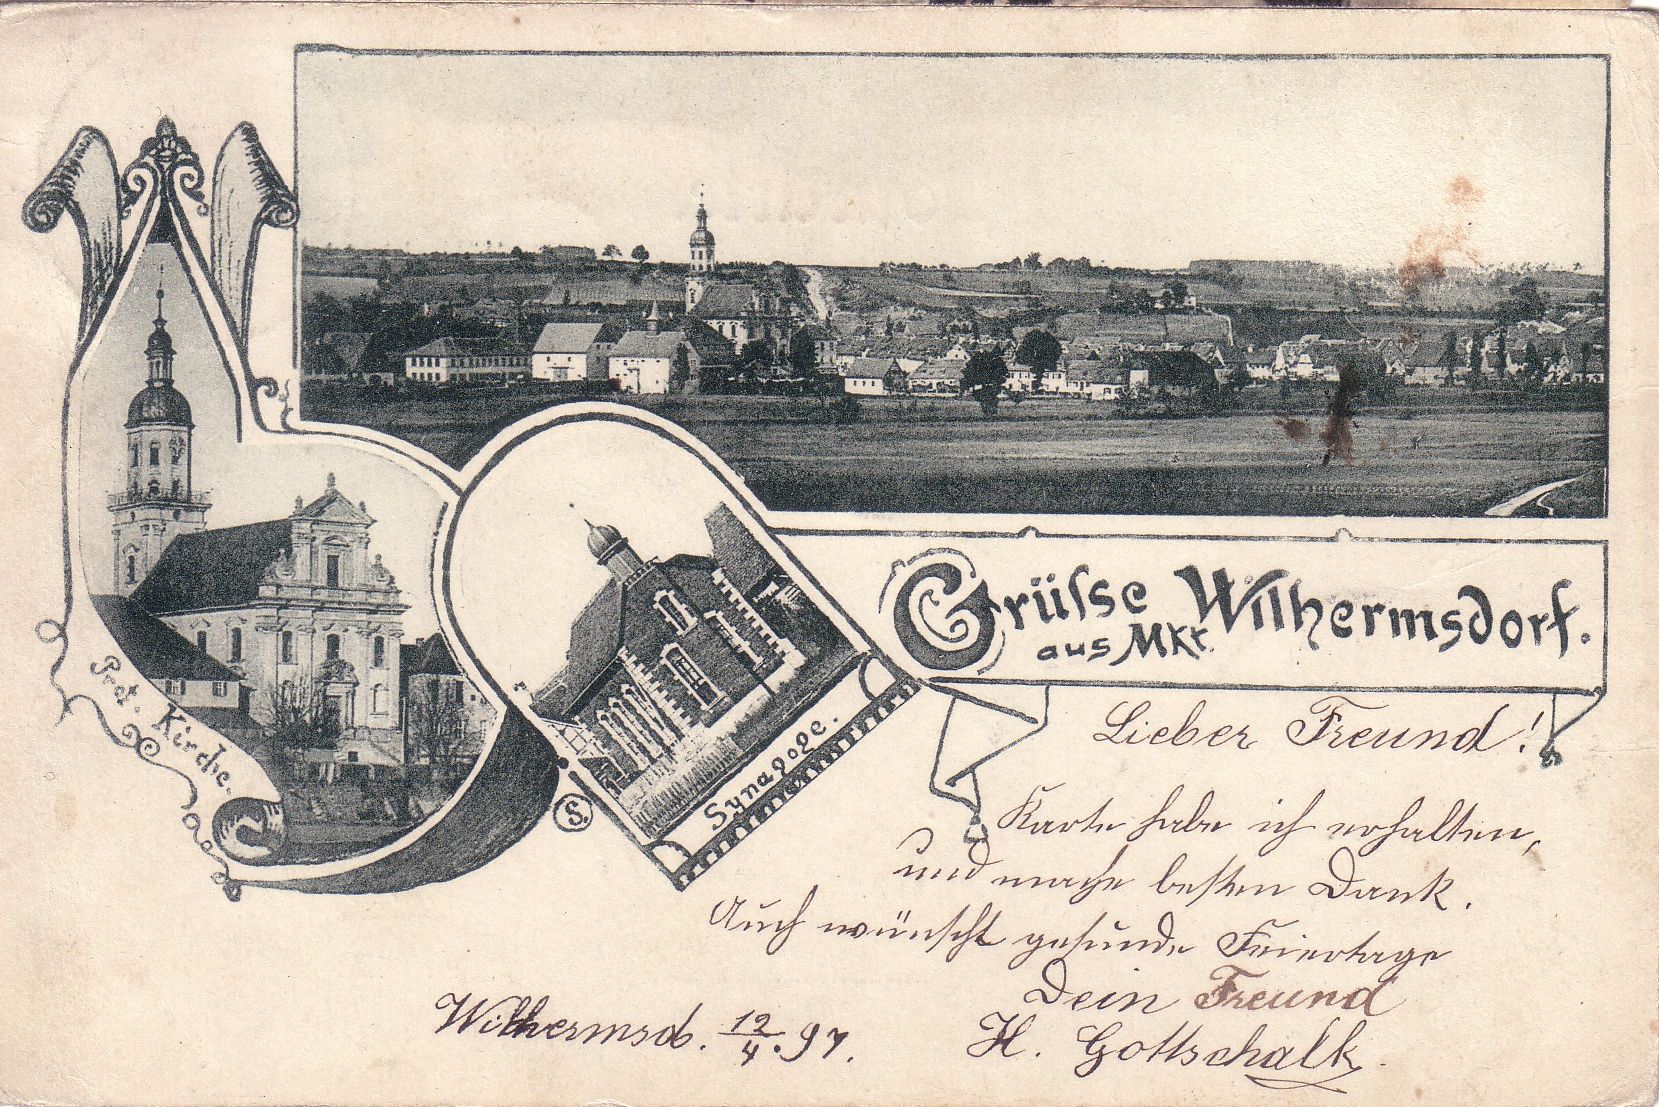 Grüſse
aus Mkt. Wilhermsdorf.
Prot. Kirche.
Synagoge.
S.
Lieber Freund!
Karte habe ich erhalten,
und mache besten Dank.
Auch wünscht gesunde Feiertage
Dein Freund
H. Gottschalk.
Wilhermsd. 12/4. 97.